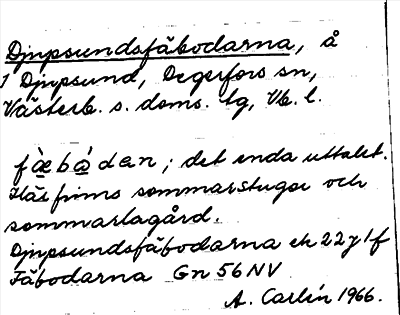 Djupsundsfäbodarna, å
1 Djupsund, Degerfors sn,
Västerb. s. doms. tg, Vb. l.
fä̀bòdan; det enda uttalet.
Här finns sommarstugor och
sommarlagård.
Djupsundsfäbodarna ek 22 y 1 f
Fäbodarna Gn 56 NV
A. Carlin 1966.